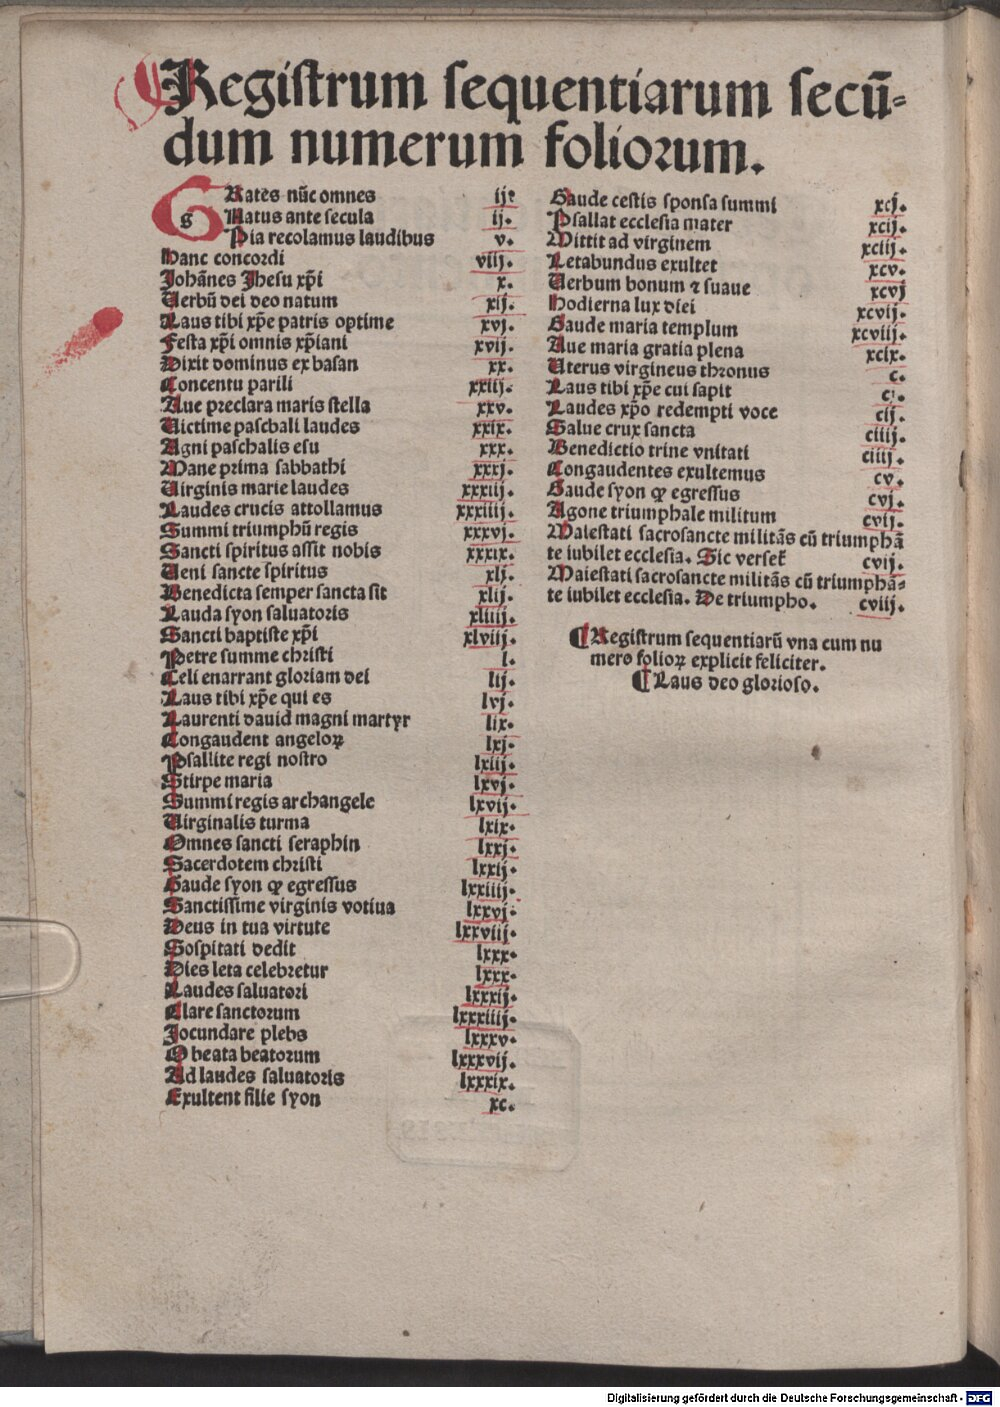 Registrum sequentiarum secū-
dum numerum foliorum.
GRates nūc omnes ij.
Natus ante secula ij.
Pia recolamus laudibus v.
Hanc concordi viij.
Johānes Jhesu xp̄i x.
Verbū dei deo natum xij.
Laus tibi xp̄e patris optime xvj.
Festa xp̄i omnis xp̄iani xvij.
Dixit dominus ex basan xx.
Concentu parili xxiij.
Aue preclara maris stella xxv.
Victime paschali laudes xxix.
Agni paschalis esu xxx.
Mane prima sabbathi xxxj.
Virginis marie laudes xxxiij.
Laudes crucis attollamus xxxiiij.
Summi triumphū regis xxxvj.
Sancti spiritus assit nobis xxxix.
Veni sancte spiritus xlj.
Benedicta semper sancta sit xlij.
Lauda syon saluatoris xliiij.
Sancti baptiste xp̄i xlviij.
Petre summe christi l.
Celi enarrant gloriam dei lij.
Laus tibi xp̄e qui es lvj.
Laurenti dauid magni martyr lix.
Congaudent angeloꝝ lxj.
Psallite regi nostro lxiij.
Stirpe maria lxvj.
Summi regis archangele lxvij.
Virginalis turma lxix.
Omnes sancti seraphin lxxj.
Sacerdotem christi lxxij.
Gaude syon ꝙ egressus lxxiiij.
Sanctissime virginis votiua lxxvj.
Deus in tua virtute lxxviij.
Sospitati dedit lxxx.
Dies leta celebretur lxxx.
Laudes saluatori lxxxij.
Clare sanctorum lxxxiiij.
Jocundare plebs lxxxv.
O beata beatorum lxxxvij.
Ad laudes saluatoris lxxxix.
Exultent filie syon xc.
Gaude cestis sponsa summi xcj.
Psallat ecclesia mater xcij.
Mittit ad virginem xciij.
Letabundus exultet xcv.
Verbum bonum ⁊ suaue xcvj
Hodierna lux diei xcvij.
Gaude maria templum xcviij.
Aue maria gratia plena xcix.
Vterus virgineus thronus c.
Laus tibi xp̄e cui sapit cj.
Laudes xp̄o redempti voce cij.
Salue crux sancta ciiij.
Benedictio trine vnitati ciiij.
Congaudentes exultemus cv.
Gaude syon ꝙ egressus cvj.
Agone triumphale militum cvij.
Maiestati sacrosancte militās cū triumphā
te iubilet ecclesia. Sic verset̄ cvij.
Maiestati sacrosancte militās cū triumphā-
te iubilet ecclesia. De triumpho. cviij.
¶ Registrum sequentiarū vna cum nu
mero folioꝝ explicit feliciter.
¶ Laus deo glorioso.
Digitalisierung gefördert durch die Deutsche Forschungsgemeinschaft - DFG